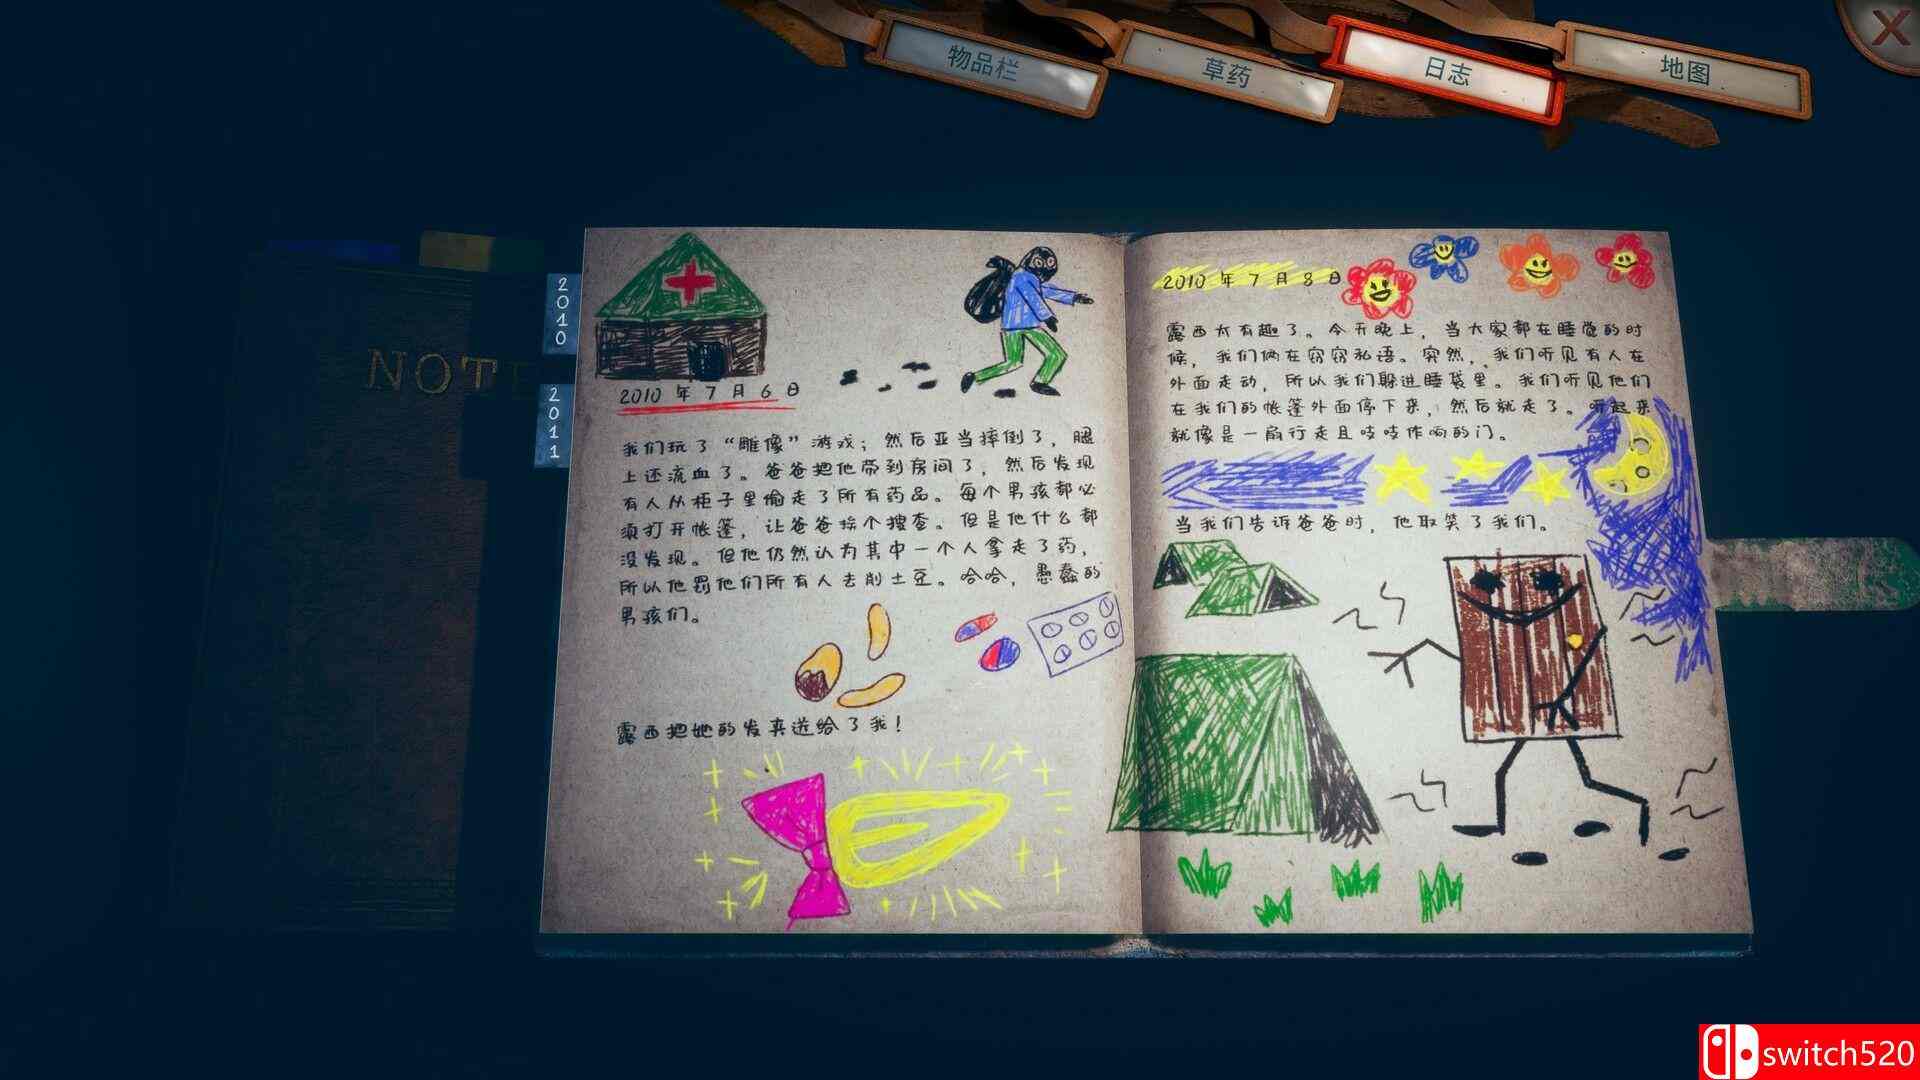 物品栏
草药
日志
地图
X
NOTE
2010
2011
2010年7月6日
我们玩了“雕像”游戏；然后亚当摔倒了，腿
上还流血了。爸爸把他带到房间了，然后发现
有人从柜子里偷走了所有药品。每个男孩都必
须打开帐篷，让爸爸挨个搜查。但是他什么都
没发现。但他仍然认为其中一个人拿走了药，
所以他罚他们所有人去削土豆。哈哈，愚蠢的
男孩们。
露西把她的发夹送给了我！
2010年7月8日
露西太有趣了。今天晚上，当大家都在睡觉的时
候，我们俩在窃窃私语。突然，我们听见有人在
外面走动，所以我们躲进睡袋里。我们听见他们
在我们的帐篷外面停下来，然后就走了。听起来
就像是一扇行走且吱吱作响的门。
当我们告诉爸爸时，他取笑了我们。
switch520